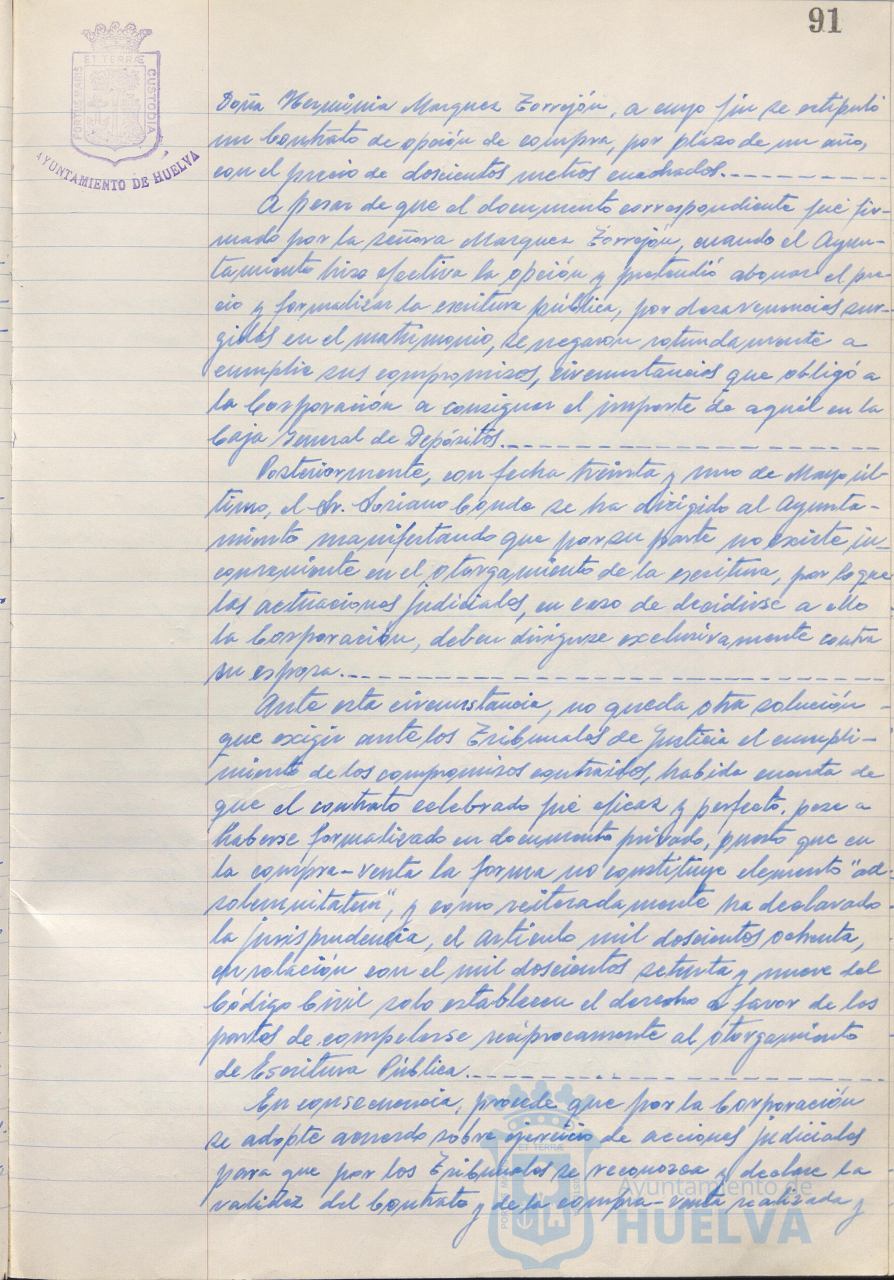 91
PORTUS MARIS ET TERRÆ CUSTODIA
AYUNTAMIENTO DE HUELVA
Doña Herminia Marquez Torrejón, a cuyo fin se estipuló
un Contrato de opción de compra, por plazo de un año,
con el precio de doscientos metros cuadrados.
A pesar de que el documento correspondiente fué fir-
mado por la señora Marquez Torrejón, cuando el Ayun-
tamiento hizo efectiva la opción y pretendió abonar el pre-
cio y formalizar la escritura pública, por desavenencias sur-
gidas en el matrimonio, se negaron rotundamente a
cumplir sus compromisos, circunstancias que obligó a
la Corporación a consignar el importe de aquél en la
Caja General de Depósitos.
Posteriormente, con fecha treinta y uno de Mayo úl-
timo, el Sr. Soriano Conde se ha dirigido al Ayunta-
miento manifestando que por su parte no existe in-
conveniente en el otorgamiento de la escritura, por lo que
las actuaciones judiciales, en caso de decidirse a ello
la Corporación, deben dirigirse exclusivamente contra
su esposa.
Ante esta circunstancia, no queda otra solución
que exigir ante los Tribunales de Justicia el cumpli-
miento de los compromisos contraidos, habida cuenta de
que el contrato celebrado fué eficaz y perfecto, pese a
haberse formalizado en documento privado, puesto que en
la compra-venta la forma no constituye elemento "ad-
solemnitatem", y como reiteradamente ha declarado
la jurisprudencia, el artículo mil doscientos ochenta,
en relación con el mil doscientos setenta y nueve del
Código Civil solo establecen el derecho a favor de las
partes de compelerse recíprocamente al otorgamiento
de Escritura Pública.
En consecuencia, procede que por la Corporación
se adopte acuerdo sobre ejercicio de acciones judiciales
para que por los Tribunales se reconozca y declare la
validez del Contrato y de la compra-venta realizada y
Ayuntamiento de
HUELVA